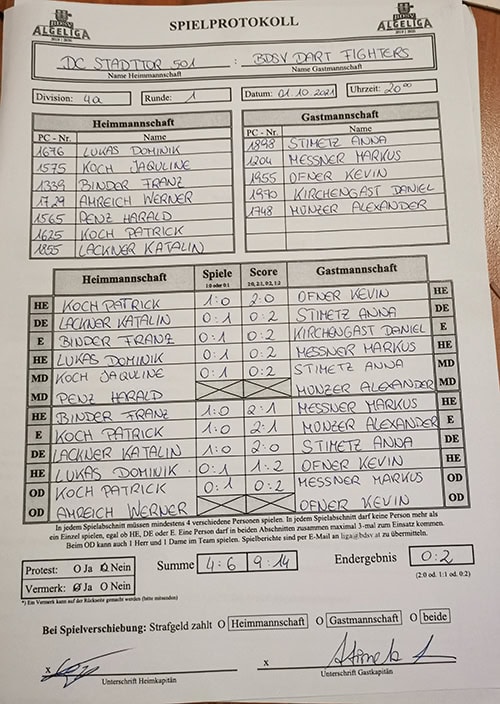 BDSV SPIELPROTOKOLL BDSV
ALGELIGA ALGELIGA
2019 / 2020 2019 / 2020
DC STADTTOR 501 : BDSV DART FIGHTERS
Name Heimmannschaft Name Gastmannschaft
Division: 4a Runde: 1 Datum: 01.10.2021 Uhrzeit: 20⁰⁰
Heimmannschaft Gastmannschaft
PC - Nr. Name PC - Nr. Name
1676 LUKAS DOMINIK 1898 STIMETZ ANNA
1575 KOCH JAQULINE 1204 MESSNER MARKUS
1339 BINDER FRANZ 1955 OFNER KEVIN
1729 AMREICH WERNER 1970 KIRCHENGAST DANIEL
1565 PENZ HARALD 1748 MÜNZER ALEXANDER
1625 KOCH PATRICK
1855 LACKNER KATALIN
Heimmannschaft Spiele Score Gastmannschaft
1:0 oder 0:1 2:0, 2:1, 0:2, 1:2
HE KOCH PATRICK 1:0 2:0 OFNER KEVIN HE
DE LACKNER KATALIN 0:1 0:2 STIMETZ ANNA DE
E BINDER FRANZ 0:1 0:2 KIRCHENGAST DANIEL E
HE LUKAS DOMINIK 0:1 0:2 MESSNER MARKUS HE
MD KOCH JAQULINE 0:1 0:2 STIMETZ ANNA MD
MD PENZ HARALD MÜNZER ALEXANDER MD
HE BINDER FRANZ 1:0 2:1 MESSNER MARKUS HE
E KOCH PATRICK 1:0 2:1 MÜNZER ALEXANDER E
DE LACKNER KATALIN 1:0 2:0 STIMETZ ANNA DE
HE LUKAS DOMINIK 0:1 1:2 OFNER KEVIN HE
OD KOCH PATRICK 0:1 0:2 MESSNER MARKUS OD
OD AMREICH WERNER OFNER KEVIN OD
In jedem Spielabschnitt müssen mindestens 4 verschiedene Personen spielen. In jedem Spielabschnitt darf keine Person mehr als
ein Einzel spielen, egal ob HE, DE oder E. Eine Person darf in beiden Abschnitten zusammen maximal 3-mal zum Einsatz kommen.
Beim OD kann auch 1 Herr und 1 Dame im Team spielen. Spielberichte sind per E-Mail an liga@bdsv.at zu übermitteln.
Protest: O Ja O Nein Summe 4:6 9:14 Endergebnis 0:2
Vermerk: O Ja O Nein (2:0 od. 1:1 od. 0:2)
*) Ein Vermerk kann auf der Rückseite gemacht werden (bitte mitsenden)
Bei Spielverschiebung: Strafgeld zahlt O Heimmannschaft O Gastmannschaft O beide
x x
Unterschrift Heimkapitän Unterschrift Gastkapitän